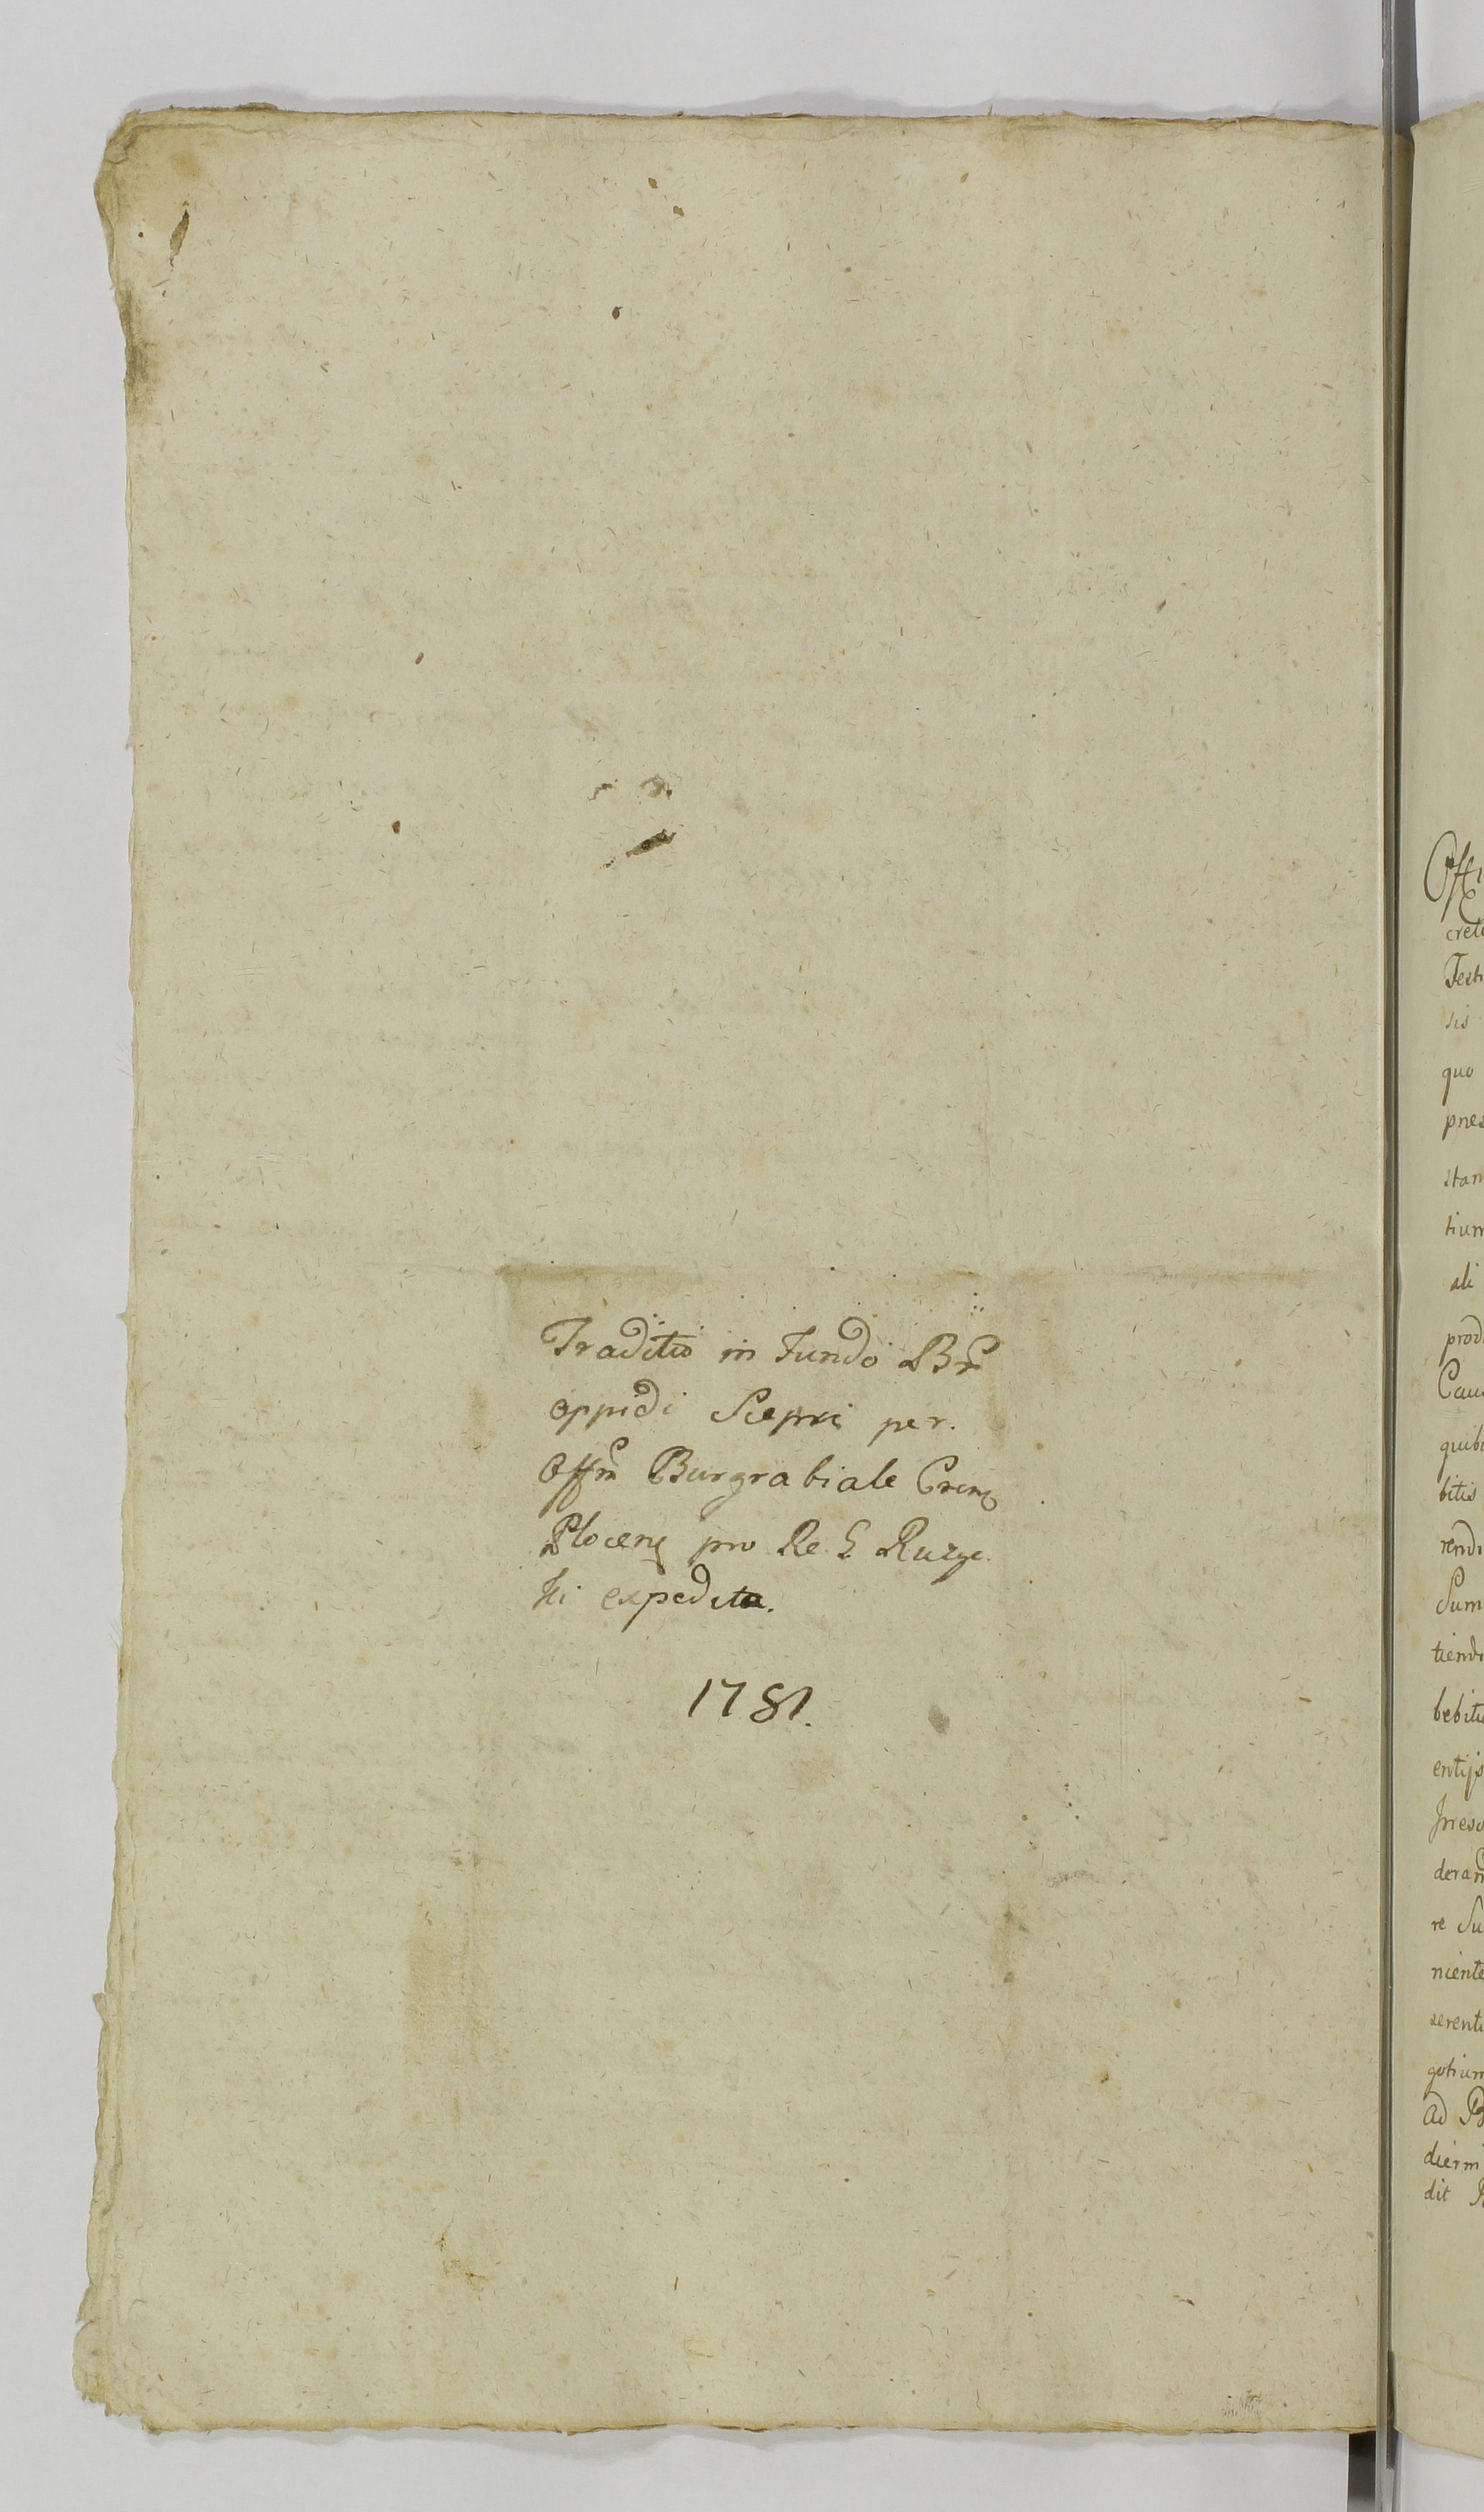 Traditio in Fundo Br̃
oppidi Sieprc per.
Offm̃ Burgrabiale Cren̄
Plocen̄ pro Re G Ruzyc.
ki expedita.
1781.
Offi
crete
Testi
sis
quo
pnes
stan
tium
ali
prod
Cau
quib
bitis
rend
Sum
tiend
bebitu
entijs
deram
re Su
niente
serent
gotium
ad B
dierm
dit